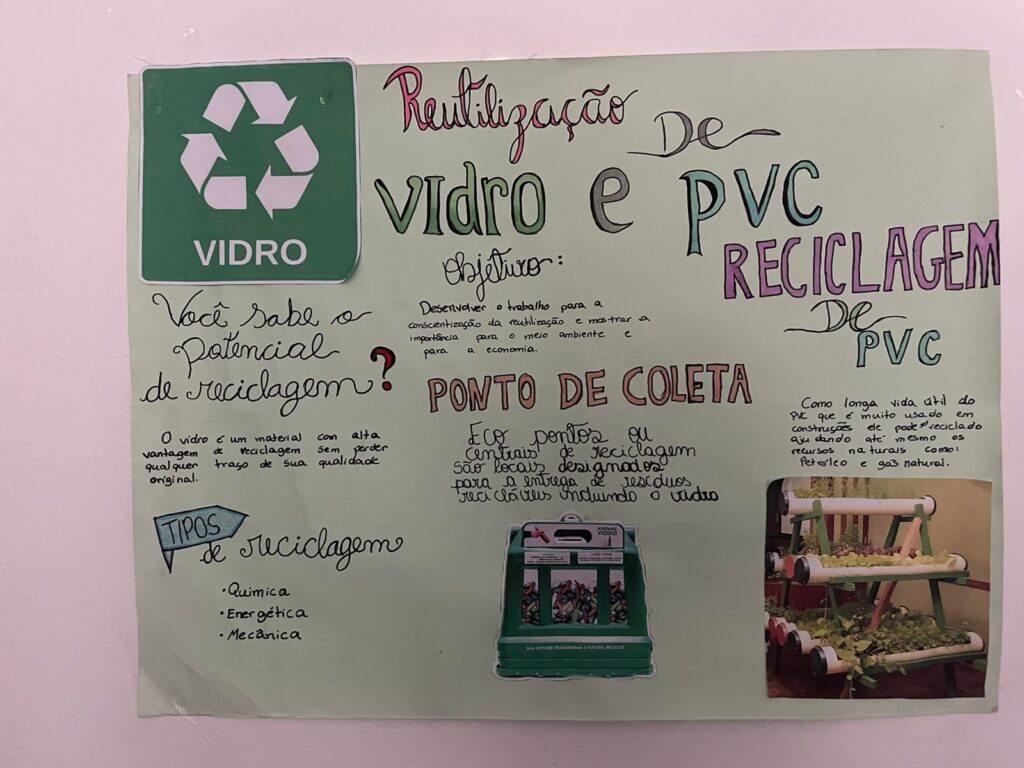 VIDRO
Reutilização
De
vidro e PVC
Objetivo:
Desenvolver o trabalho para a
conscientização da reutilização e mostrar a
importância para o meio ambiente e
para a economia.
RECICLAGEM
De
PVC
Você sabe o
potencial
de reciclagem?
O vidro é um material com alta
vantagem de reciclagem sem perder
qualquer traço de sua qualidade
original.
PONTO DE COLETA
Eco pontos ou
centrais de reciclagem
são locais designados
para a entrega de resíduos
recicláveis incluindo o vidro
Como longa vida útil do
PVC que é muito usado em
construções ele pode reciclado
ajudando até mesmo os
recursos naturais como:
Petróleo e gás natural.
TIPOS
de reciclagem
• Química
• Energética
• Mecânica
APENAS
VIDRO
SUA ATITUDE TRANSFORMA O FUTURO, RECICLE!